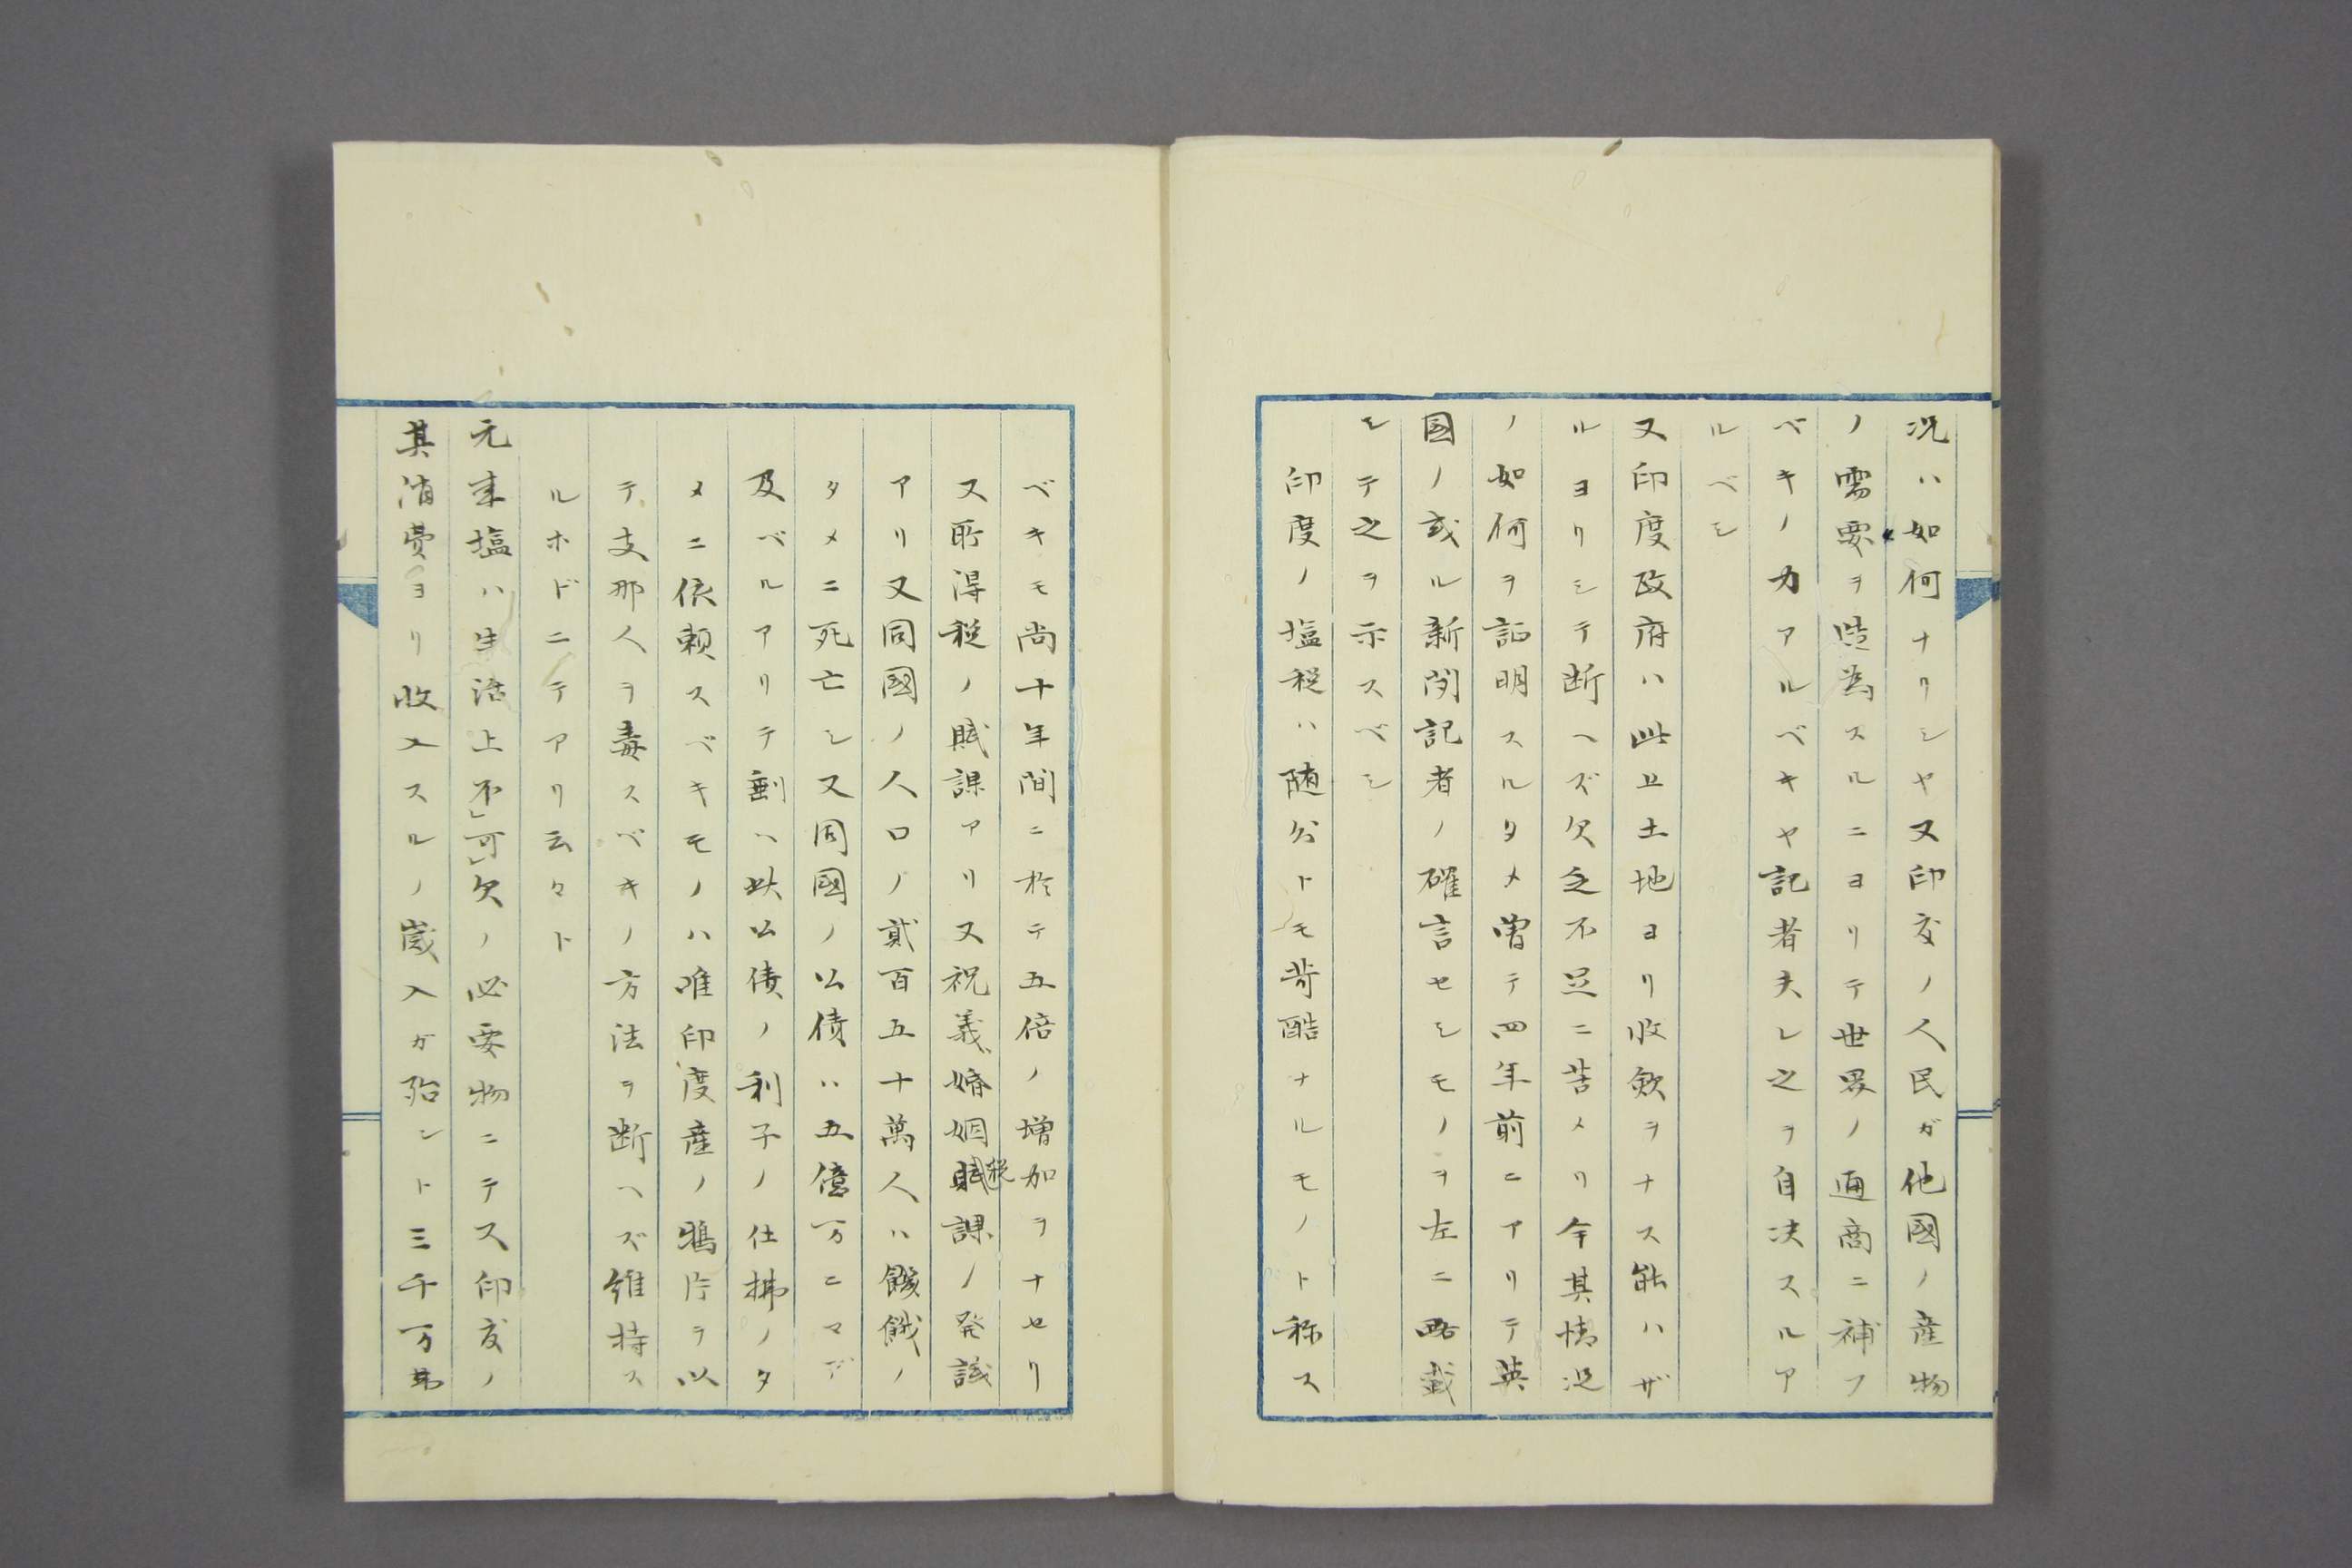 况ハ如何ナリシヤ又印度ノ人民ガ他國ノ産物
ノ需要ヲ造為スルニヨリテ世界ノ通商ニ補フ
ベキノ力アルベキヤ記者夫レ之ヲ自决スルア
ルベシ
又印度政府ハ此上土地ヨリ收斂ヲナス能ハザ
ルヨリシテ断ヘズ欠乏不足ニ苦メリ今其情况
ノ如何ヲ証明スルタメ曽テ四年前ニアリテ英
國ノ或ル新聞記者ノ確言セシモノヲ左ニ略載
シテ之ヲ示スベシ
印度ノ塩税ハ随分トモ苛酷ナルモノト称ス
ベキモ尚十年間ニ於テ五倍ノ増加ヲナセリ
又所得税ノ賦課アリ又祝義婚姻税賦課ノ発議
アリ又同國ノ人口ノ貳百五十萬人ハ饑餓ノ
タメニ死亡シ又同國ノ公債ハ五億万ニマデ
及ベルアリテ剰ヘ此公債ノ利子ノ仕拂ノタ
メニ依頼スベキモノハ唯印度産ノ鴉片ヲ以
テ支那人ヲ毒スベキノ方法ヲ断ヘズ維持ス
ルホドニテアリ云々ト
元来塩ハ生活上不可欠ノ必要物ニテ又印度ノ
其消費ヨリ收入スルノ歳入ガ殆ント三千万弗